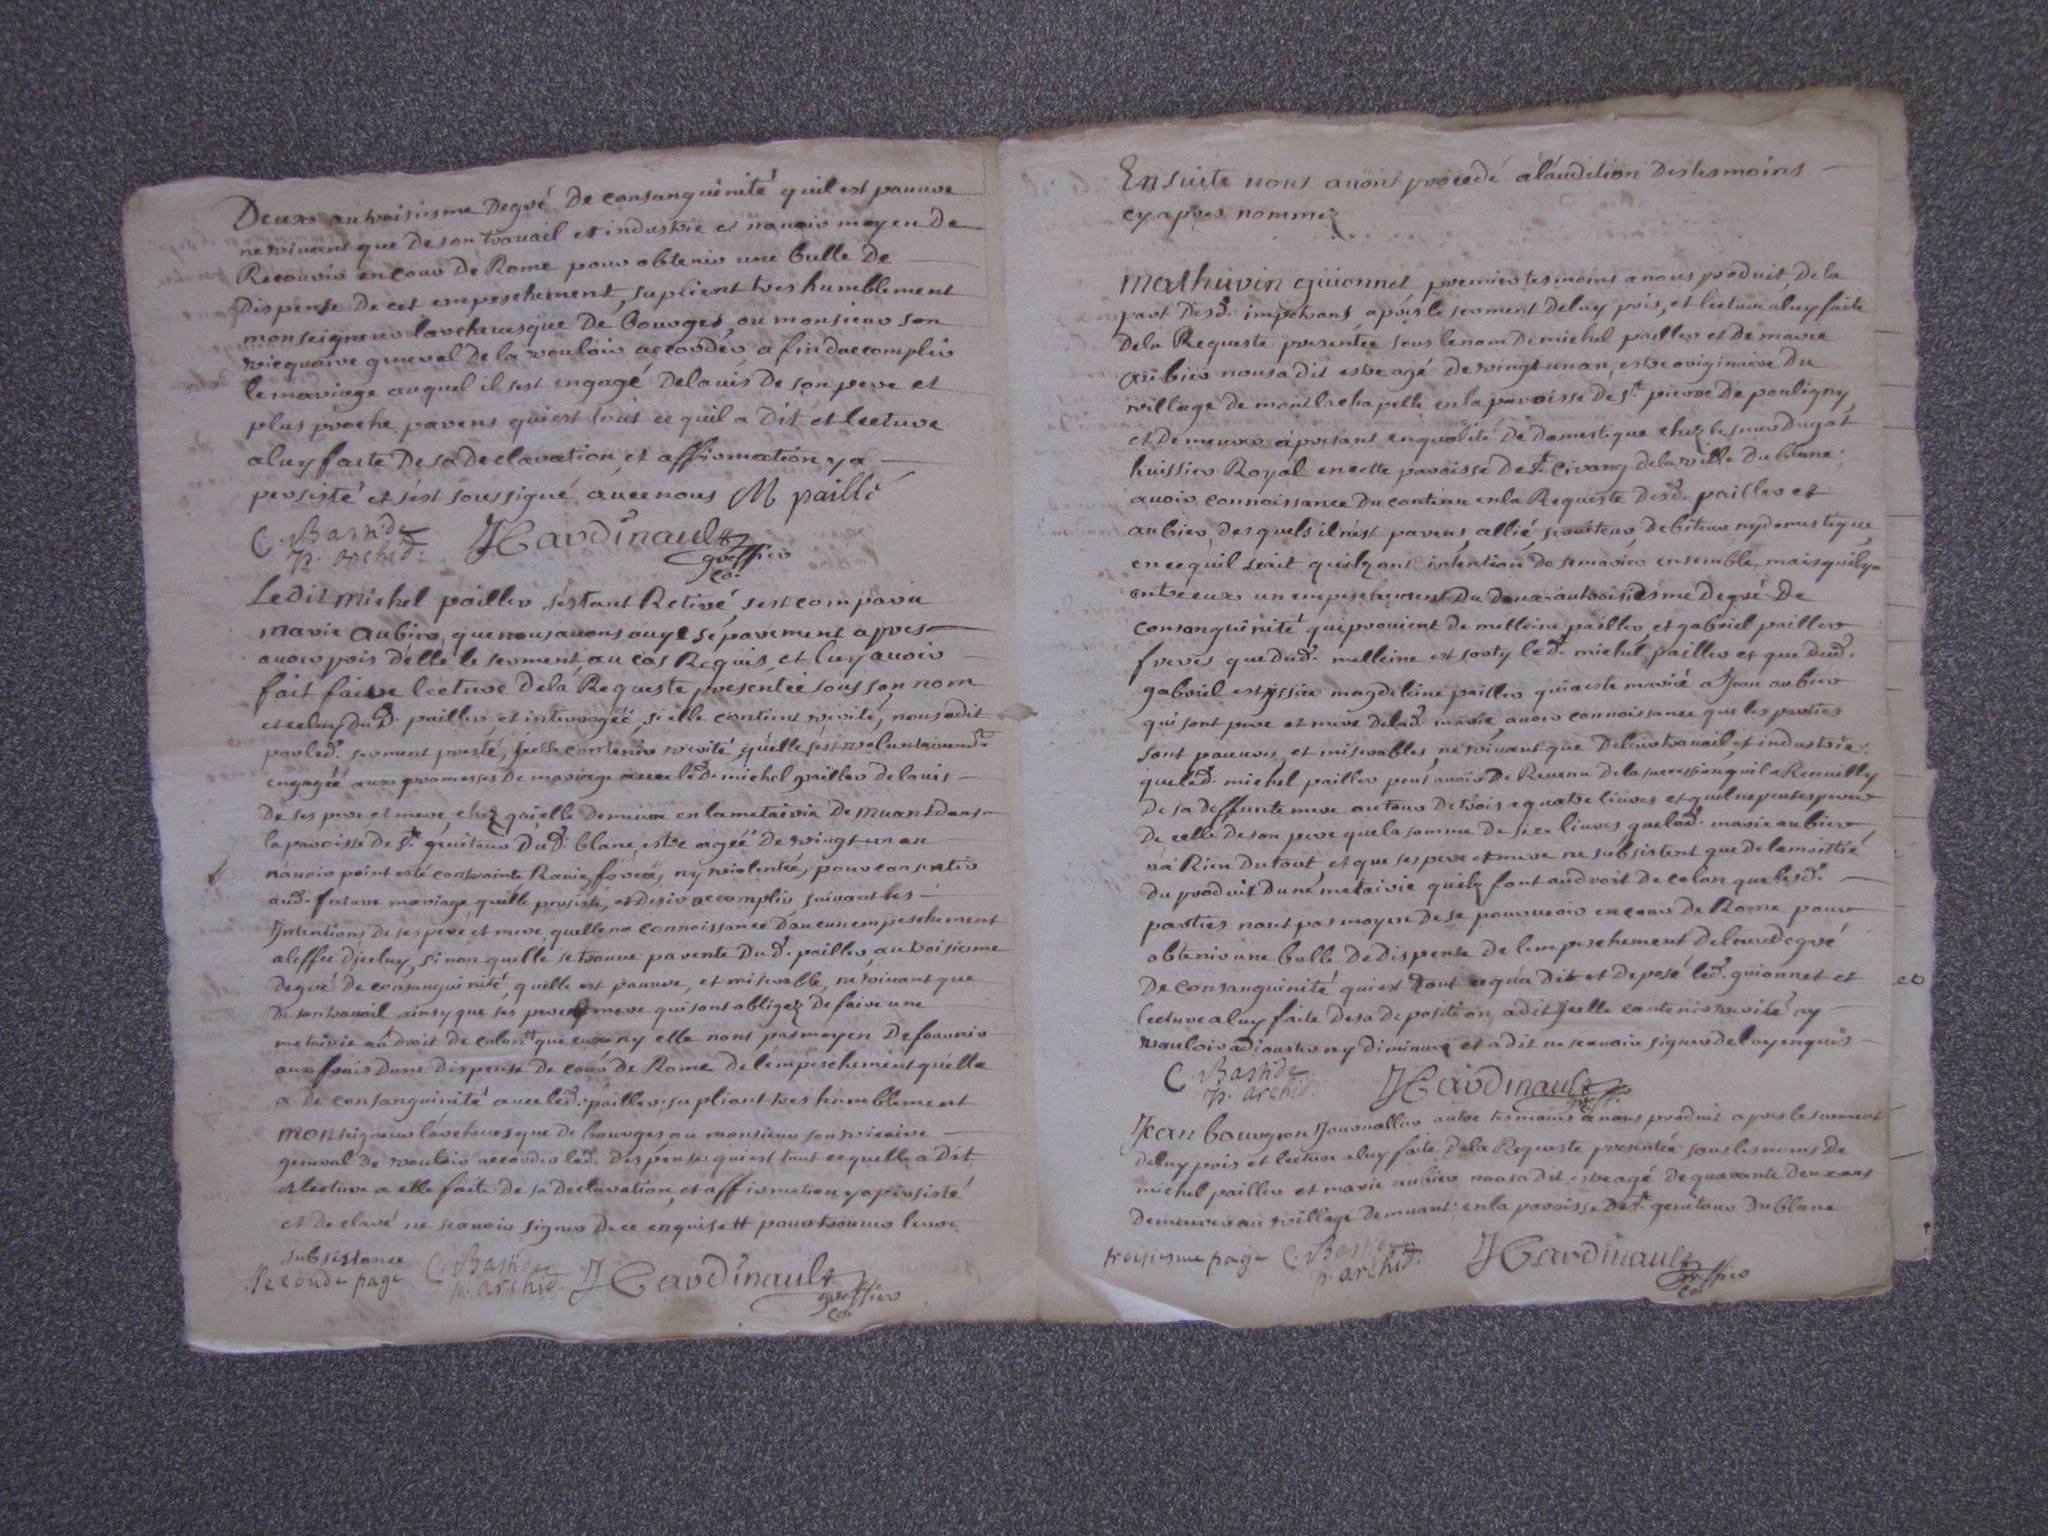 Deux au troisiesme degré de consanguinité quil est pauvre
ne vivant que de son travail et industrie et navoir moyen de
Recouvir en cour de Rome pour obtenir une bulle de
dispense de cet empeschement, suplient tres humblement
monseigneur larchevesque de bourges, ou monsieur son
vicquaire general de la vouloir accorder afin daccomplir
le mariage auquel il sest engagé delavis de son pere et
plus proche parens qui est tout ce quil a dit et lecture
aluy faite de sa declaration et affirmation y a
persisté et sest soussigné avec nous M paillé
C. Bastide JCardinault
p. archid. greffier
co.
Ledit michel pailler sestant Retiré, sest comparu
marie aubier, que nous avons ouye séparement apres
avoir pris d'elle le serment, au cas Requis, et luy avoir
fait faire lecture dela Requeste presentée sous son nom
et celuy dud. pailler et interrogée, si elle contient verité, nous a dit
par led. serment presté, jcelle contenir verité qu'elle s'est volontairemt.
engagée aux promesses de mariage avec led. michel pailler delavis
de ses pere et mere, chez qui elle demeure en la metairie de muant dans
la paroisse de st. genitour dud. blanc, estre agée de vingt un an
navoir point esté contrainte Ravie, forcée, ny violentée, pour consentir
aud. futur mariage quelle persiste, et desir accomplir suivant les
Jntentions de ses pere et mere, quelle na connoissance daucun empeschement
aleffet d'jceluy, sinon quelle se trouve parente dud. pailler, au troisiesme
degré de consanguinité, quelle est pauvre, et miserable, ne vivant que
de son travail ainsy que ses pere et mere qui sont obligez de faire une
metairie au droit de colon # que eux ny elle nont pas moyen de fournir
aux frais dune dispense de cour de Rome de l'empeschement qu'elle
a de consanguinité avec led. pailler supliant tres humblement
monseigneur l'archevesque de bourges ou monsieur son vicaire
general de vouloir accorder lad. dispense qui est tout ce quelle a dit
et lecture a elle faite de sa declaration, et affirmation y a persisté
et declaré ne scavoir signer de ce enquise # pour trouver leur
subsistance
seconde page C. Bastide JCardinault
p. archid. greffier
co.
Ensuite nous avons procedé a laudition des tesmoins
cy apres nommez
Mathurin guionnet premier tesmoins a nous produit, de la
part desd. impetrans apres le serment de luy pris, et lecture aluy faite
dela Requeste presentée sous le nom de michel pailler et de marie
aubier nous a dit estre agé de vingt un an, estre originaire du
village de montlachapelle en la paroisse de st. pierre de pouligny,
et demeurer apresent en qualité de domestique chez le sieur dugat
huissier Royal en cette paroisse de st. cirang de la ville du blanc
avoir connoissance du contenu en la Requeste desd. pailler et
aubier, des quels il nest parens, allié, serviteur, debiteur ny domestique,
en ce quil scait quilz ont intention de se marier ensemble, mais quil y a
entre eux un empeschement du deux au troisiesme degré de
consanguinité qui provient de melleine pailler, et gabriel pailler
freres que dud. melleine est sorty led. michel pailler et que dud.
gabriel est issüe magdeleine pailler qui a esté mariée a Jean aubier
qui sont pere et mere de lad. marie, avoir connoissance que les parties
sont pauvres, et miserables, ne vivant que de leur travail, et industrie,
que led. michel pailler peut avoir de Revenu de la succession quil a Recueilly
de sa deffunte mere autour de trois a quatre livres et quil ne peut esperer
de celle de son pere que la somme de six livres que lad. marie aubier
n'a Rien du tout, et que ses pere et mere ne subsistent que de la moittié
du produit dune metairie quilz font au droit de colon que lesd.
parties nont pas moyen de se pourvoir en cour de Rome pour
obtenir une bulle de dispense de lempeschement de leur degré
de consanguinité qui est tout ce qu'a dit et deposé led. guionnet et
lecture aluy faite de sa deposition, a dit jcelle contenir verité ny
vouloir adjouster ny diminuer et a dit ne scavoir signer de luy enquis
C. Bastide JCardinault
p. archid. greff.
Jean bourgeon Journallier autre tesmoins a nous produit apres le serment
de luy pris et lecture aluy faite de la Requeste presentée sous les noms de
michel pailler et marie aubier nous a dit estre agé de quarante deux ans
demeurer au village de muant en la paroisse de st. genitour du blanc
troisiesme page C. Bastide JCardinault
p. archid. greffier
co.